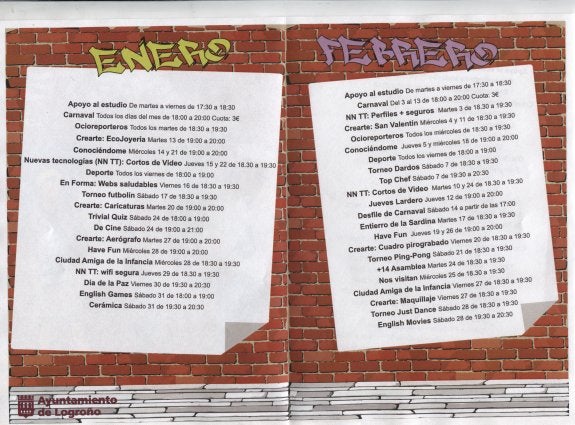 ENERO
Apoyo al estudio De martes a viernes de 17:30 a 18:30
Carnaval Todos los días del mes de 18:00 a 20:00 Cuota: 3€
Ocioreporteros Todos los martes de 18:30 a 19:30
Crearte: EcoJoyería Martes 13 de 19:00 a 20:00
Conociéndome Miércoles 14 y 21 de 19:00 a 20:00
Nuevas tecnologías (NN TT): Cortos de Vídeo Jueves 15 y 22 de 18:30 a 19:30
Deporte Todos los viernes de 18:00 a 19:00
En Forma: Webs saludables Viernes 16 de 18:30 a 19:30
Torneo futbolín Sábado 17 de 18:30 a 19:30
Crearte: Caricaturas Martes 20 de 19:00 a 20:00
Trivial Quiz Sábado 24 de 18:00 a 19:00
De Cine Sábado 24 de 19:00 a 21:00
Crearte: Aerógrafo Martes 27 de 19:00 a 20:00
Have Fun Miércoles 28 de 19:00 a 20:00
Ciudad Amiga de la Infancia Miércoles 28 de 18:30 a 19:30
NN TT: wifi segura Jueves 29 de 18.30 a 19:30
Día de la Paz Viernes 30 de 19:30 a 20:30
English Games Sábado 31 de 18:00 a 19:00
Cerámica Sábado 31 de 19:30 a 20:30
Ayuntamiento
de Logroño
FEBRERO
Apoyo al estudio De martes a viernes de 17:30 a 18:30
Carnaval Del 3 al 13 de 18:00 a 20:00 Cuota: 3€
NN TT: Perfiles + seguros Martes 3 de 18:30 a 19:30
Crearte: San Valentín Miércoles 4 y 11 de 18:30 a 19:30
Ocioreporteros Todos los martes de 18:30 a 19:30
Conociéndome Jueves 5 y miércoles 18 de 19:00 a 20:00
Deporte Todos los viernes de 18:00 a 19:00
Torneo Dardos Sábado 7 de 18:30 a 19:30
Top Chef Sábado 7 de 19:30 a 20:30
NN TT: Cortos de Vídeo Martes 10 y 24 de 18:30 a 19:30
Jueves Lardero Jueves 12 de 19:00 a 20:00
Desfile de Carnaval Sábado 14 a partir de las 17:00
Entierro de la Sardina Martes 17 de 18:30 a 19:30
Have Fun Jueves 19 y 26 de 19:00 a 20:00
Crearte: Cuadro pirograbado Viernes 20 de 18:30 a 19:30
Torneo Ping-Pong Sábado 21 de 18:30 a 19:30
+14 Asamblea Martes 24 de 18:30 a 19:30
Nos visitan Miércoles 25 de 18:30 a 19:30
Ciudad Amiga de la Infancia Viernes 27 de 18:30 a 19:30
Crearte: Maquillaje Viernes 27 de 18:30 a 19:30
Torneo Just Dance Sábado 28 de 18:30 a 19:30
English Movies Sábado 28 de 19:30 a 20:30